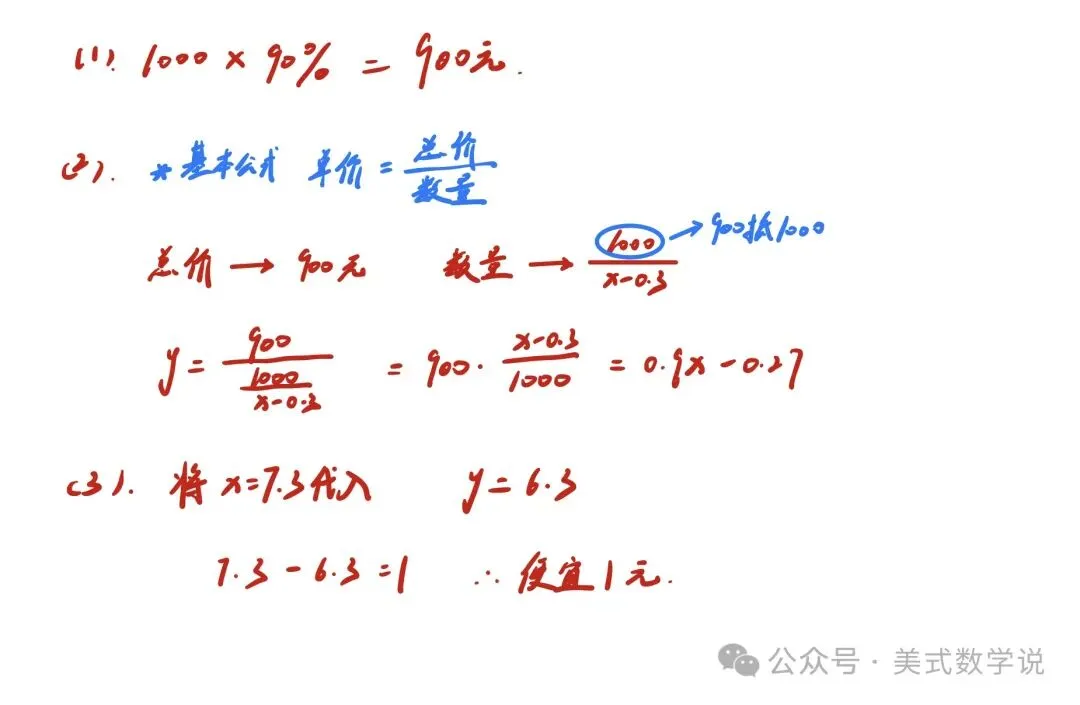 (1). 1000 × 90% = 900元.
(2). *基本公式 单价 = 总价/数量
总价 → 900元 数量 → 1000/(x-0.3) → 900抵1000
y = 900/(1000/(x-0.3)) = 900 · (x-0.3)/1000 = 0.9x - 0.27
(3). 将 x=7.3代入 y = 6.3
7.3 - 6.3 = 1 ∴ 便宜1元.
公众号 · 美式数学说